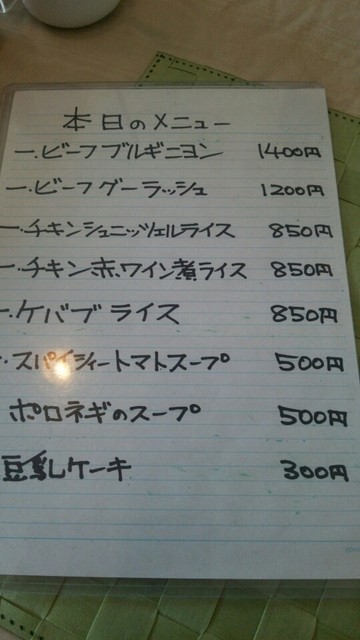 本日のメニュー
一.ビーフブルギニヨン 1400円
一.ビーフグーラッシュ 1200円
一.チキンシュニッツェルライス 850円
一.チキン赤ワイン煮ライス 850円
一.ケバブライス 850円
スパイシィートマトスープ 500円
ポロネギのスープ 500円
豆乳ケーキ 300円